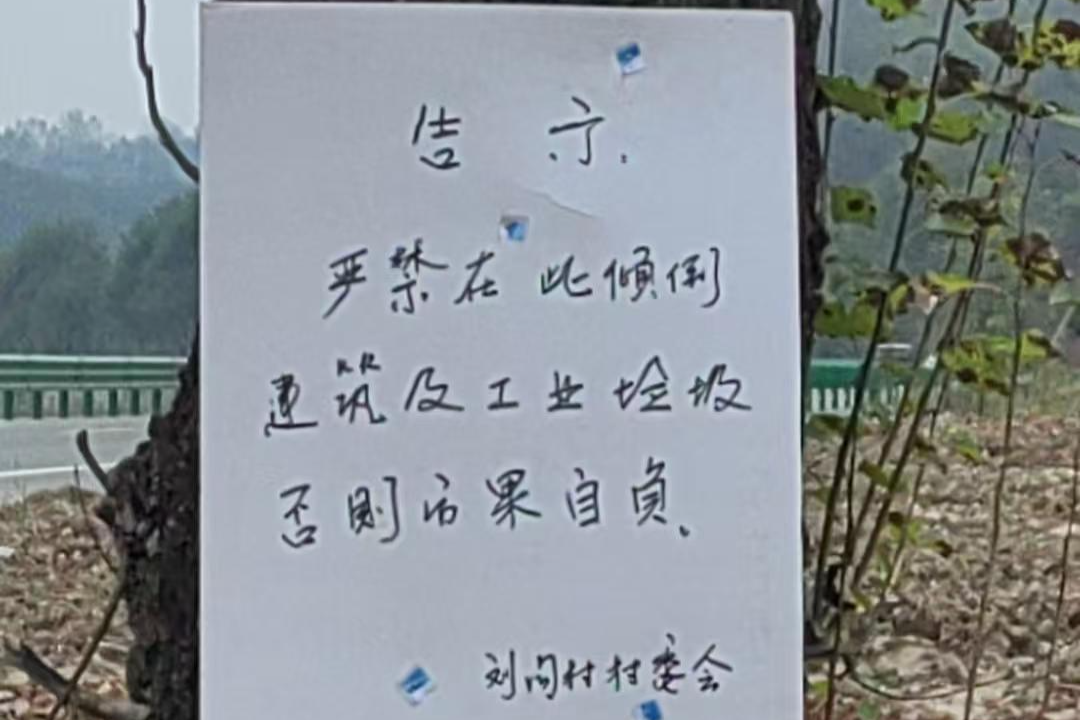 告示.
严禁在此倾倒
建筑及工业垃圾
否则后果自负.
刘问村村委会